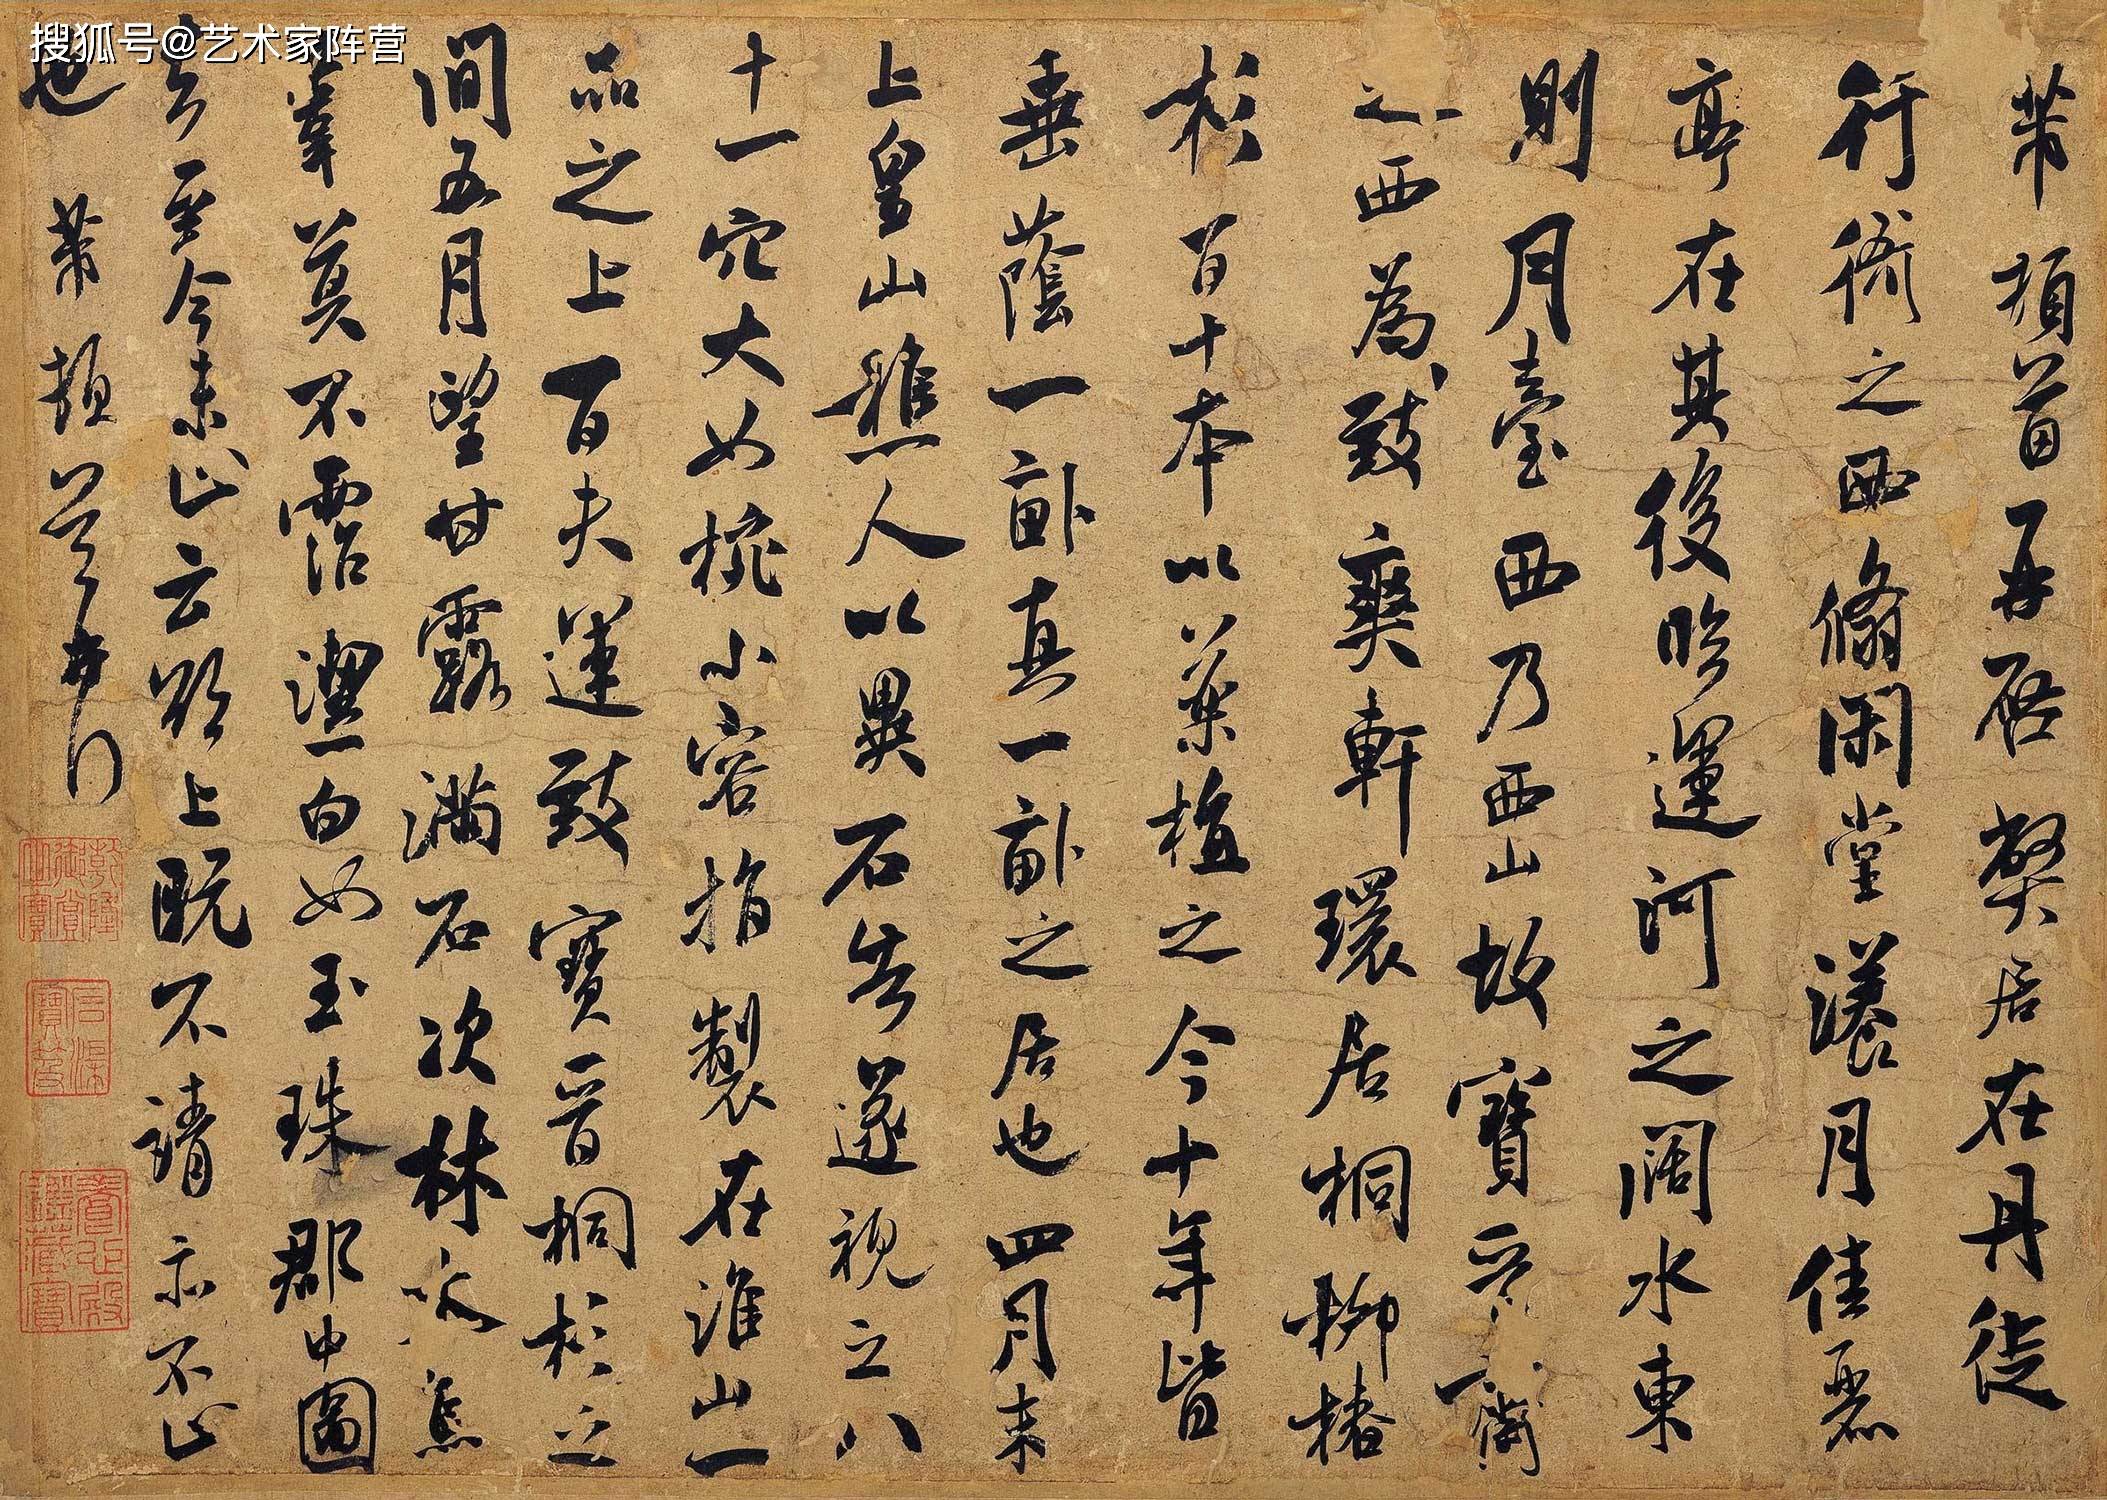 搜狐号@艺术家阵营
芾頓首再啓弊居在丹徒
行衙之西翛閑堂漾月佳麗
亭在其後臨運河之闊水東
則月臺西乃西山故寶晉齋
之西為致爽軒環居桐柳椿
杉百十本以藥植之今十年皆
垂蔭一畝真一畝之居也四月末
上皇山樵人以異石告遂視之八
十一穴大如椀小容指製在淮山一
品之上百夫運致寶晉桐杉之
間五月望甘露滿石次林木焦
葦莫不霑潔白如玉珠郡中圖
去至今未止云欲上既不請亦不止
也 芾頓首再拜
乾隆御賞之寶
石渠寶笈
養心殿鑑藏寶